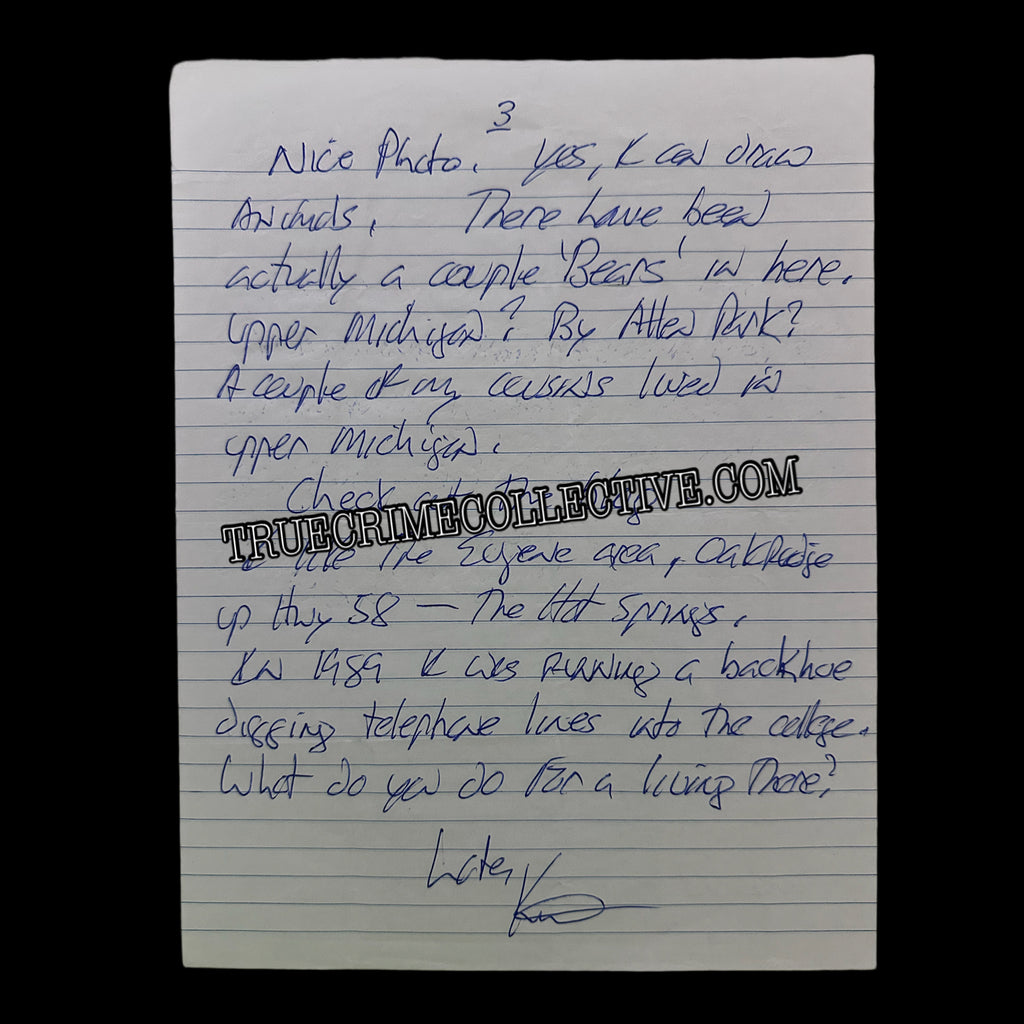 3
Nice Photo. Yes, I can draw
Animals. There have been
actually a couple 'Bears' in here.
Upper Michigan? By Allen Park?
A couple of my cousins lived in
upper Michigan.
Check out The
TRUECRIMECOLLECTIVE.COM
The Eugene area, OakRidge
up Hwy 58 — The Hot Springs.
In 1989 I was Running a backhoe
digging telephone lines into The college.
What do you do For a living There?
Later,